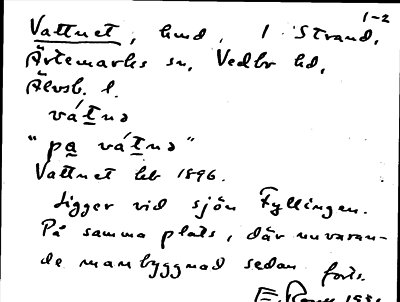 1-2
Vattnet, hmd, 1 Strand,
Ärtemarks sn, Vedbo hd,
Älvsb. l.
vátnə
"pa vátnə"
Vattnet hb 1896.
Ligger vid sjön Fyllingen.
På samma plats, där nuvaran-
de manbyggnad sedan forts.
E.